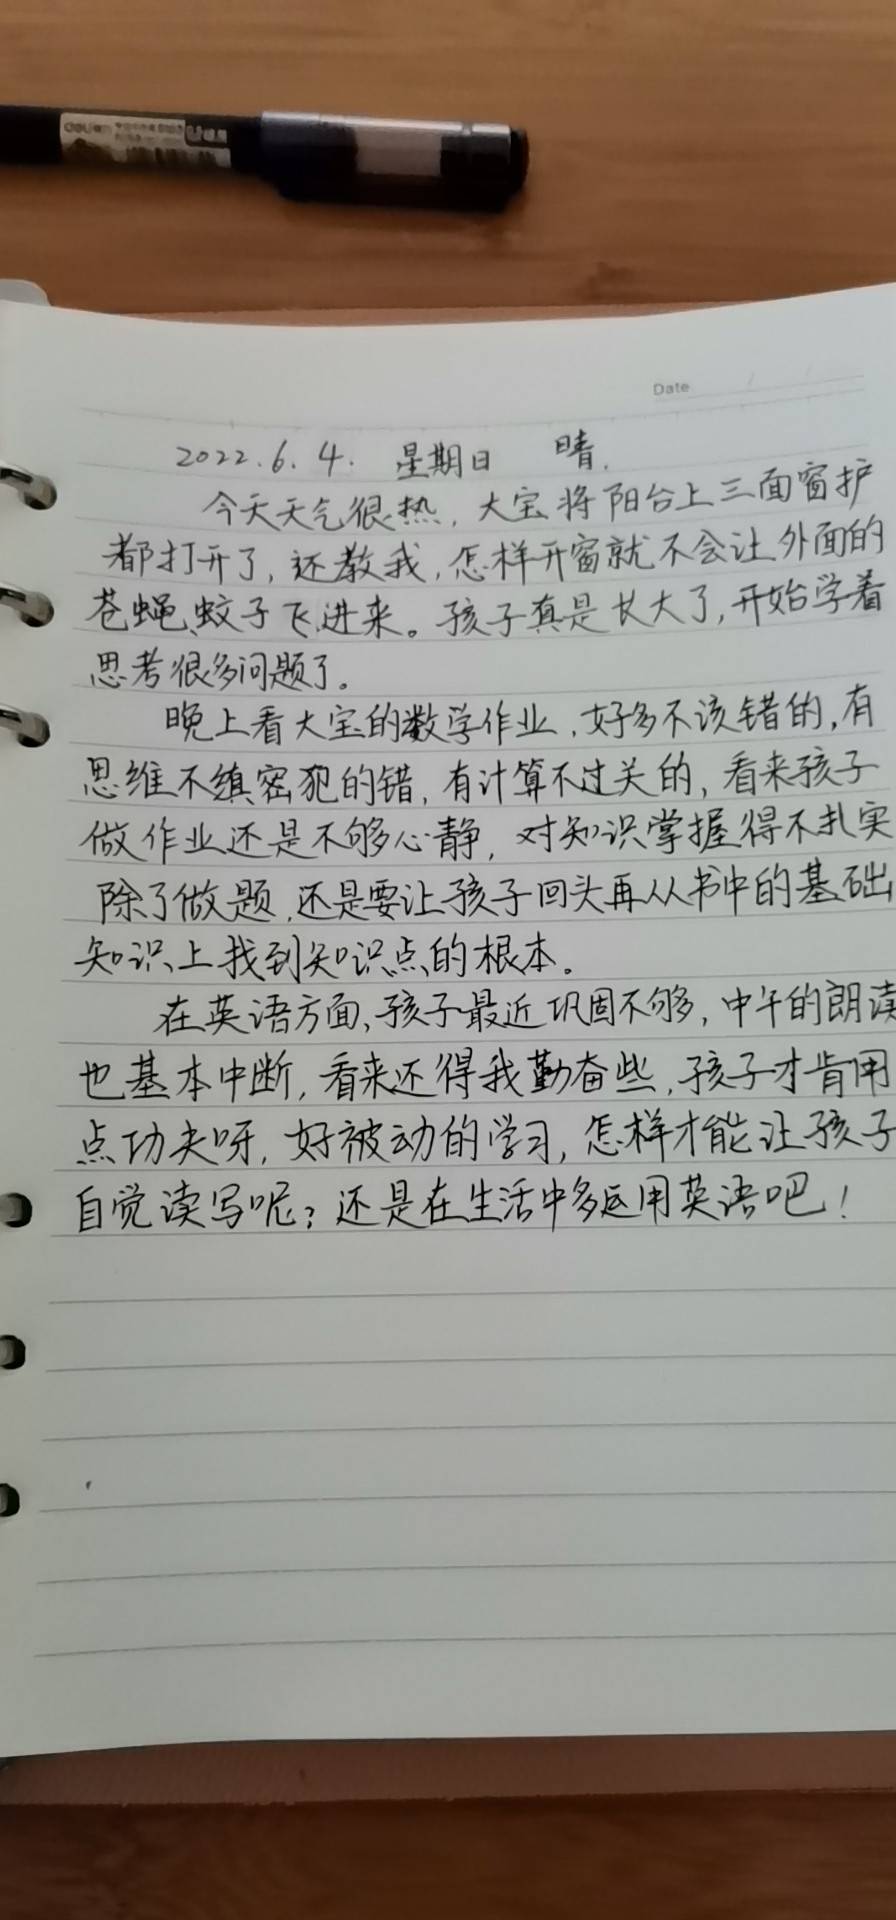 deli
Date
2022.6.4. 星期日 晴.
今天天气很热,大宝将阳台上三面窗护
都打开了,还教我,怎样开窗就不会让外面的
苍蝇、蚊子飞进来。孩子真是长大了,开始学着
思考很多问题了。
晚上看大宝的数学作业,好多不该错的,有
思维不缜密犯的错,有计算不过关的,看来孩子
做作业还是不够心静,对知识掌握得不扎实
除了做题,还是要让孩子回头再从书中的基础
知识上找到知识点的根本。
在英语方面,孩子最近巩固不够,中午的朗读
也基本中断,看来还得我勤奋些,孩子才肯用
点功夫呀,好被动的学习,怎样才能让孩子
自觉读写呢?还是在生活中多运用英语吧!